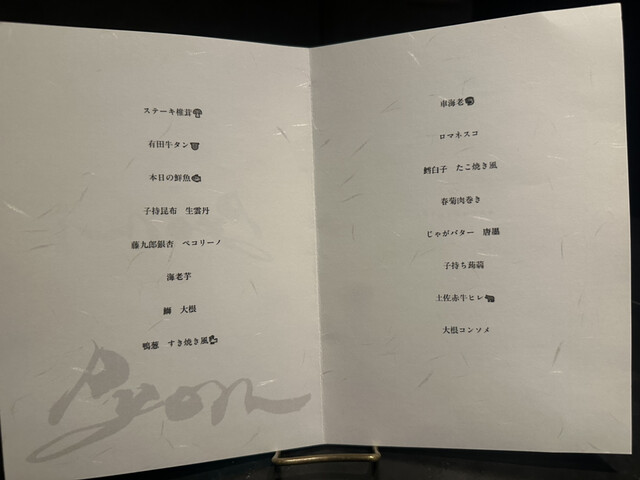 ステーキ椎茸
有田牛タン
本日の鮮魚
子持昆布 生雲丹
藤九郎銀杏 ペコリーノ
海老芋
鰤 大根
鴨葱 すき焼き風
Ryon
車海老
ロマネスコ
鱈白子 たこ焼き風
春菊肉巻き
じゃがバター 唐墨
子持ち蒟蒻
土佐赤牛ヒレ
大根コンソメ